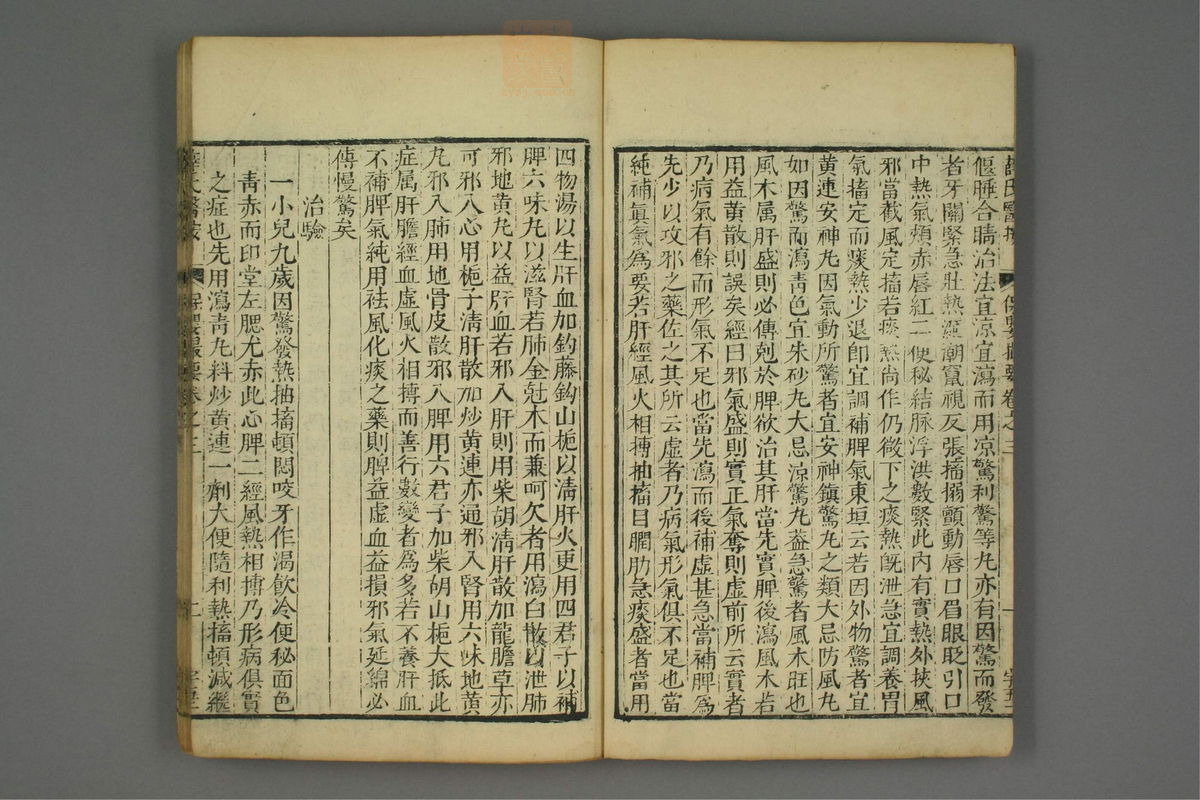 偃睡合睛治法宜凉宜瀉而用凉驚利驚等丸亦有因驚而發
者牙關緊急壯熱涎潮竄視反張搐搦顫動唇口眉眼眨引口
中熱氣頰赤唇紅二便秘結脉浮洪數緊此内有實熱外挾風
邪當截風定搐若痰熱尚作仍微下之痰熱旣泄急宜調養胃
氣搐定而痰熱少退卽宜調補脾氣東垣云若因外物驚者宜
黄連安神丸因氣動所驚者宜安神鎮驚丸之類大忌防風丸
如因驚而瀉青色宜朱砂丸大忌涼驚丸葢急驚者風木旺也
風木属肝盛則必傳尅於脾欲治其肝當先實脾後瀉風木若
用益黄散則誤矣經曰邪氣盛則實正氣奪則虚前所云實者
乃病氣有餘而形氣不足也當先瀉而後補虚甚急當補脾爲
先少以攻邪之藥佐之其所云虚者乃病氣形氣俱不足也當
純補眞氣爲要若肝經風火相搏抽搐目瞤肋急痰盛者當用
四物湯以生肝血加鈎藤鈎山梔以清肝火更用四君子以補
脾六味丸以滋腎若肺金尅木而兼呵欠者用瀉白散以泄肺
邪地黄丸以益肝血若邪入肝則用柴胡清肝散加龍膽草亦
可邪入心用梔子清肝散加炒黄連亦通邪入腎用六味地黄
丸邪入肺用地骨皮散邪入脾用六君子加柴胡山梔大抵此
症属肝膽經血虚風火相搏而善行數變者爲多若不養肝血
不補脾氣純用祛風化痰之藥則脾益虚血益損邪氣延綿必
傳慢驚矣
治驗
一小兒九歲因驚發熱抽搐頓悶咬牙作渴飲冷便秘面色
青赤而印堂左腮尤赤此心脾二經風熱相搏乃形病俱實
之症也先用瀉青丸料炒黄連一劑大便隨利熱搐頓減繼